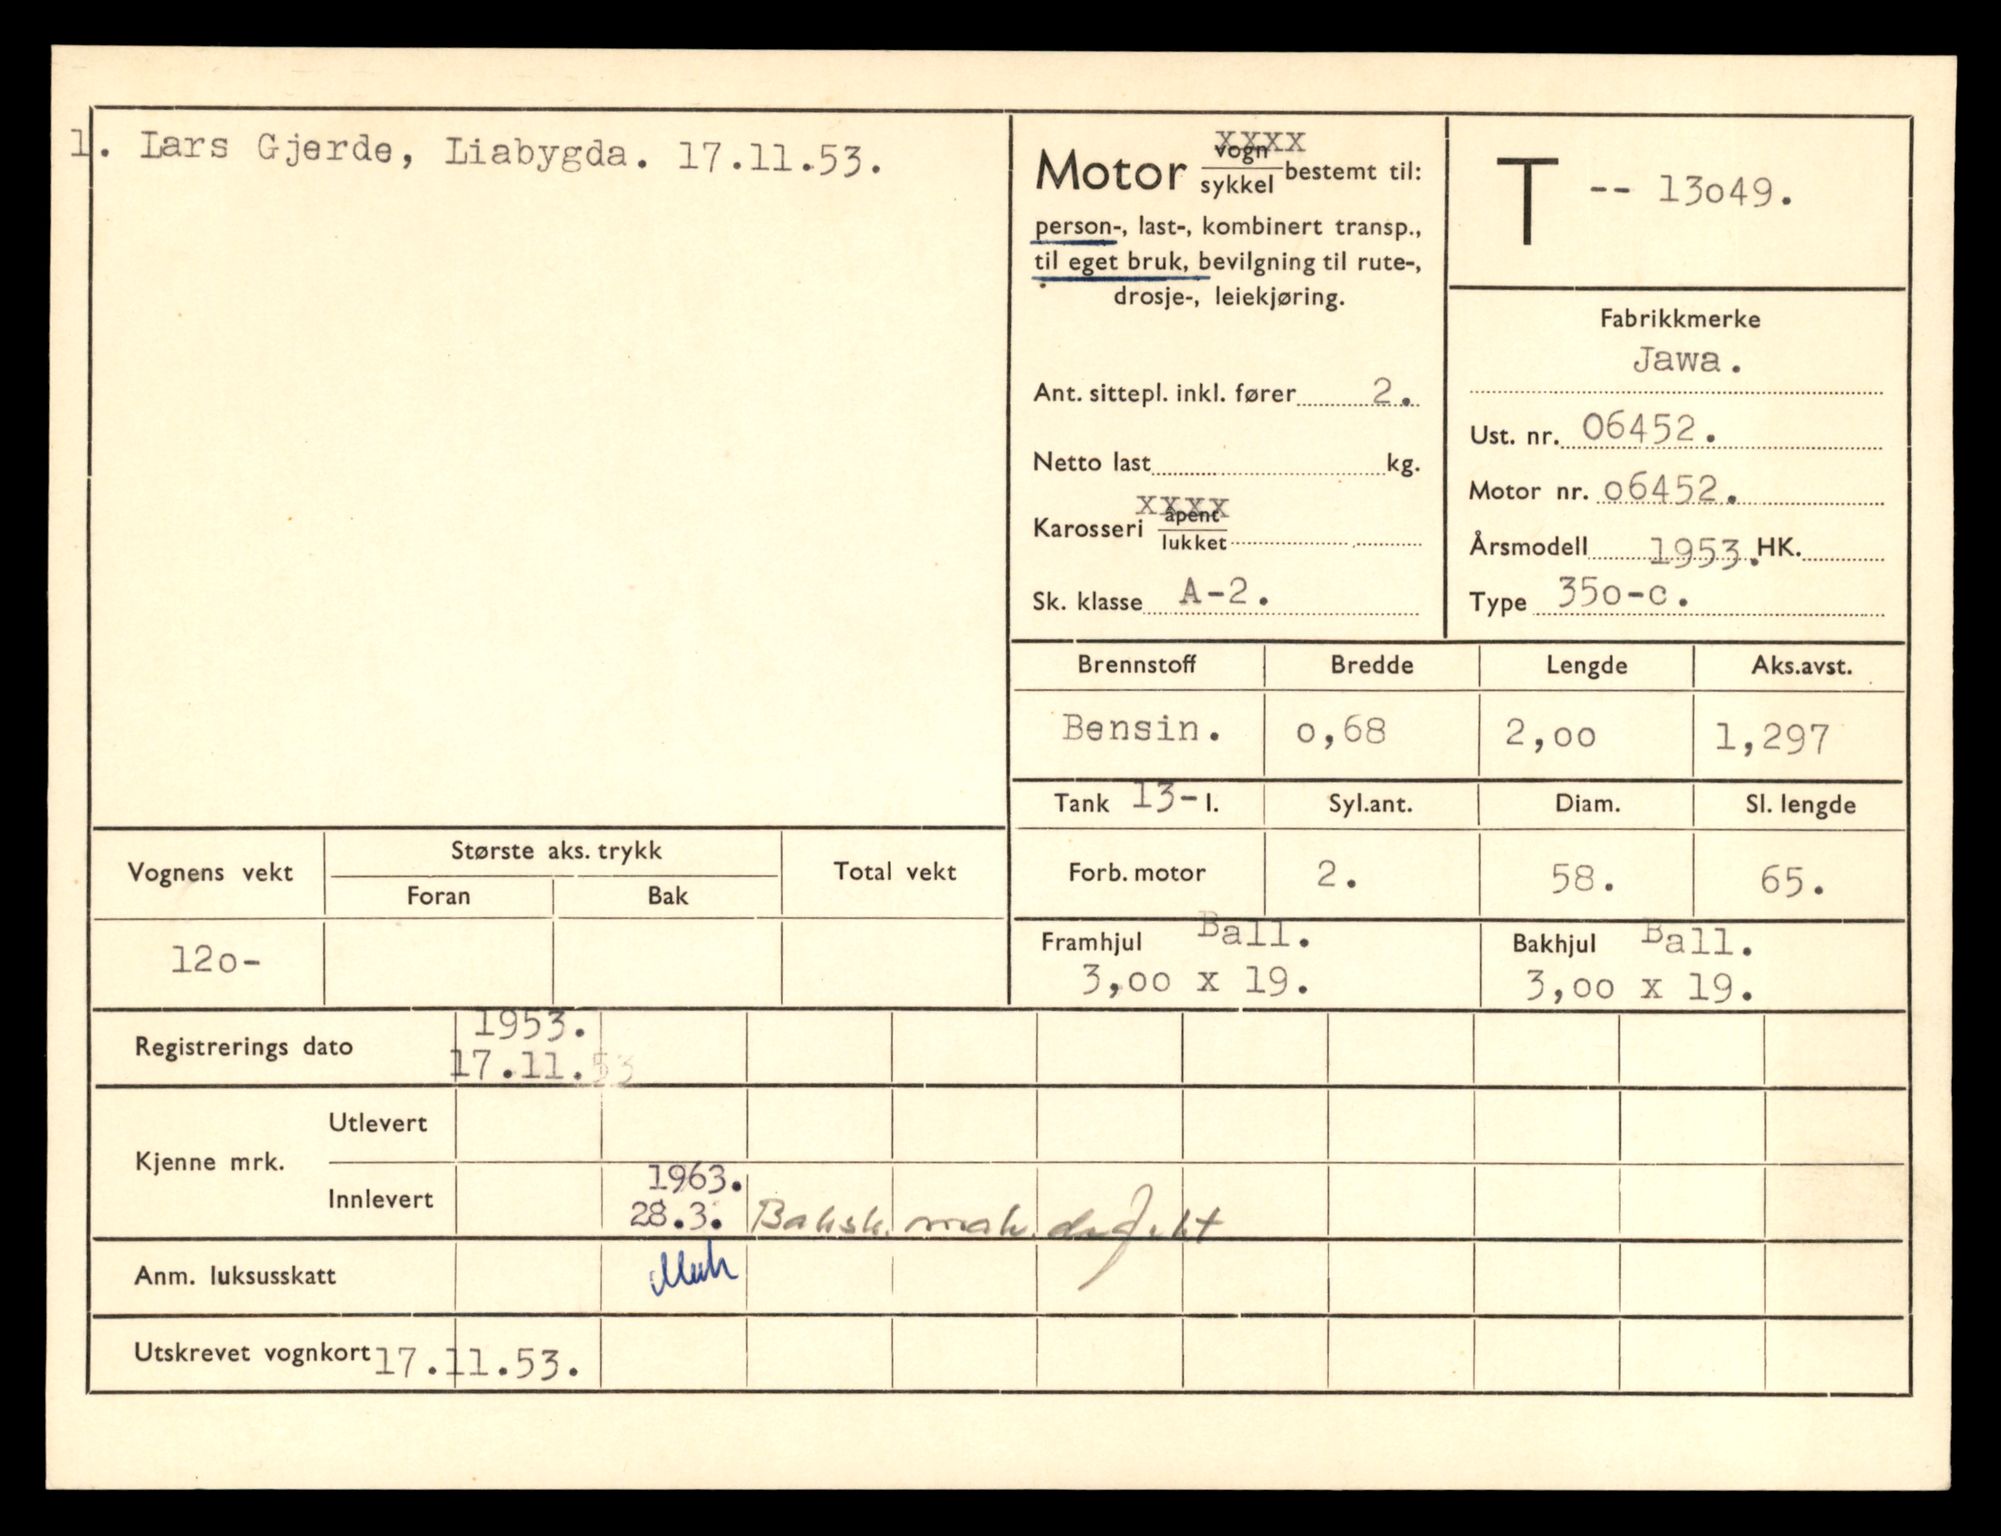 1. Lars Gjerde, Liabygda. 17.11.53.
Motor vogn xxxx
sykkel bestemt til:
person-, last-, kombinert transp.,
til eget bruk, bevilgning til rute-,
drosje-, leiekjøring.
Ant. sittepl. inkl. fører 2.
Netto last kg.
xxxx
Karosseri åpent
lukket
Sk. klasse A-2.
T -- 13o49.
Fabrikkmerke
Jawa.
Ust. nr. 06452.
Motor nr. o6452.
Årsmodell 1953. HK.
Type 35o-c.
Brennstoff Bredde Lengde Aks.avst.
Bensin. o,68 2,oo 1,297
Tank 13- l. Syl.ant. Diam. Sl. lengde
Forb. motor 2. 58. 65.
Framhjul Ball. Bakhjul Ball.
3,oo x 19. 3,oo x 19.
Vognens vekt Største aks. trykk Total vekt
Foran Bak
12o-
Registrerings dato 1953.
17.11.53
Kjenne mrk. Utlevert
Innlevert 1963.
28.3. Baksk. mak. defekt
Anm. luksusskatt
Utskrevet vognkort 17.11.53.